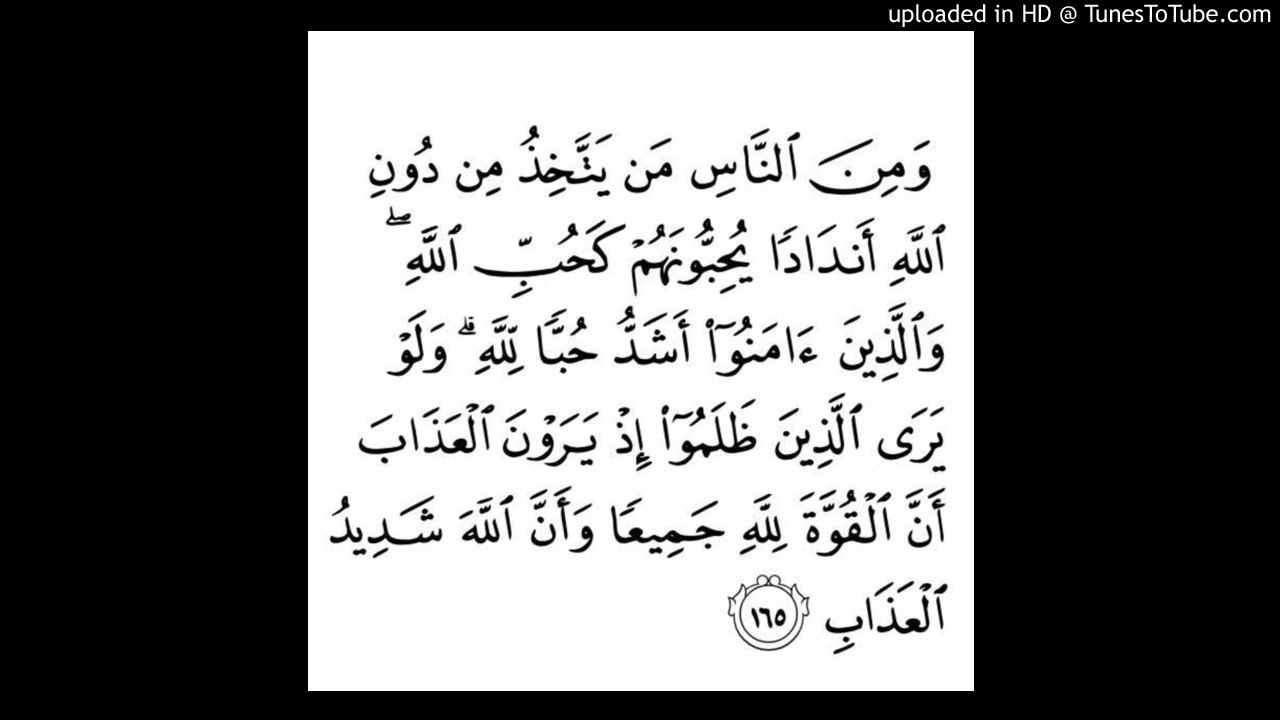 uploaded in HD @ TunesToTube.com
وَمِنَ ٱلنَّاسِ مَن يَتَّخِذُ مِن دُونِ
ٱللَّهِ أَندَادًا يُحِبُّونَهُمْ كَحُبِّ ٱللَّهِ ۖ
وَٱلَّذِينَ ءَامَنُوٓا۟ أَشَدُّ حُبًّا لِّلَّهِ ۗ وَلَوْ
يَرَى ٱلَّذِينَ ظَلَمُوٓا۟ إِذْ يَرَوْنَ ٱلْعَذَابَ
أَنَّ ٱلْقُوَّةَ لِلَّهِ جَمِيعًا وَأَنَّ ٱللَّهَ شَدِيدُ
ٱلْعَذَابِ ١٦٥